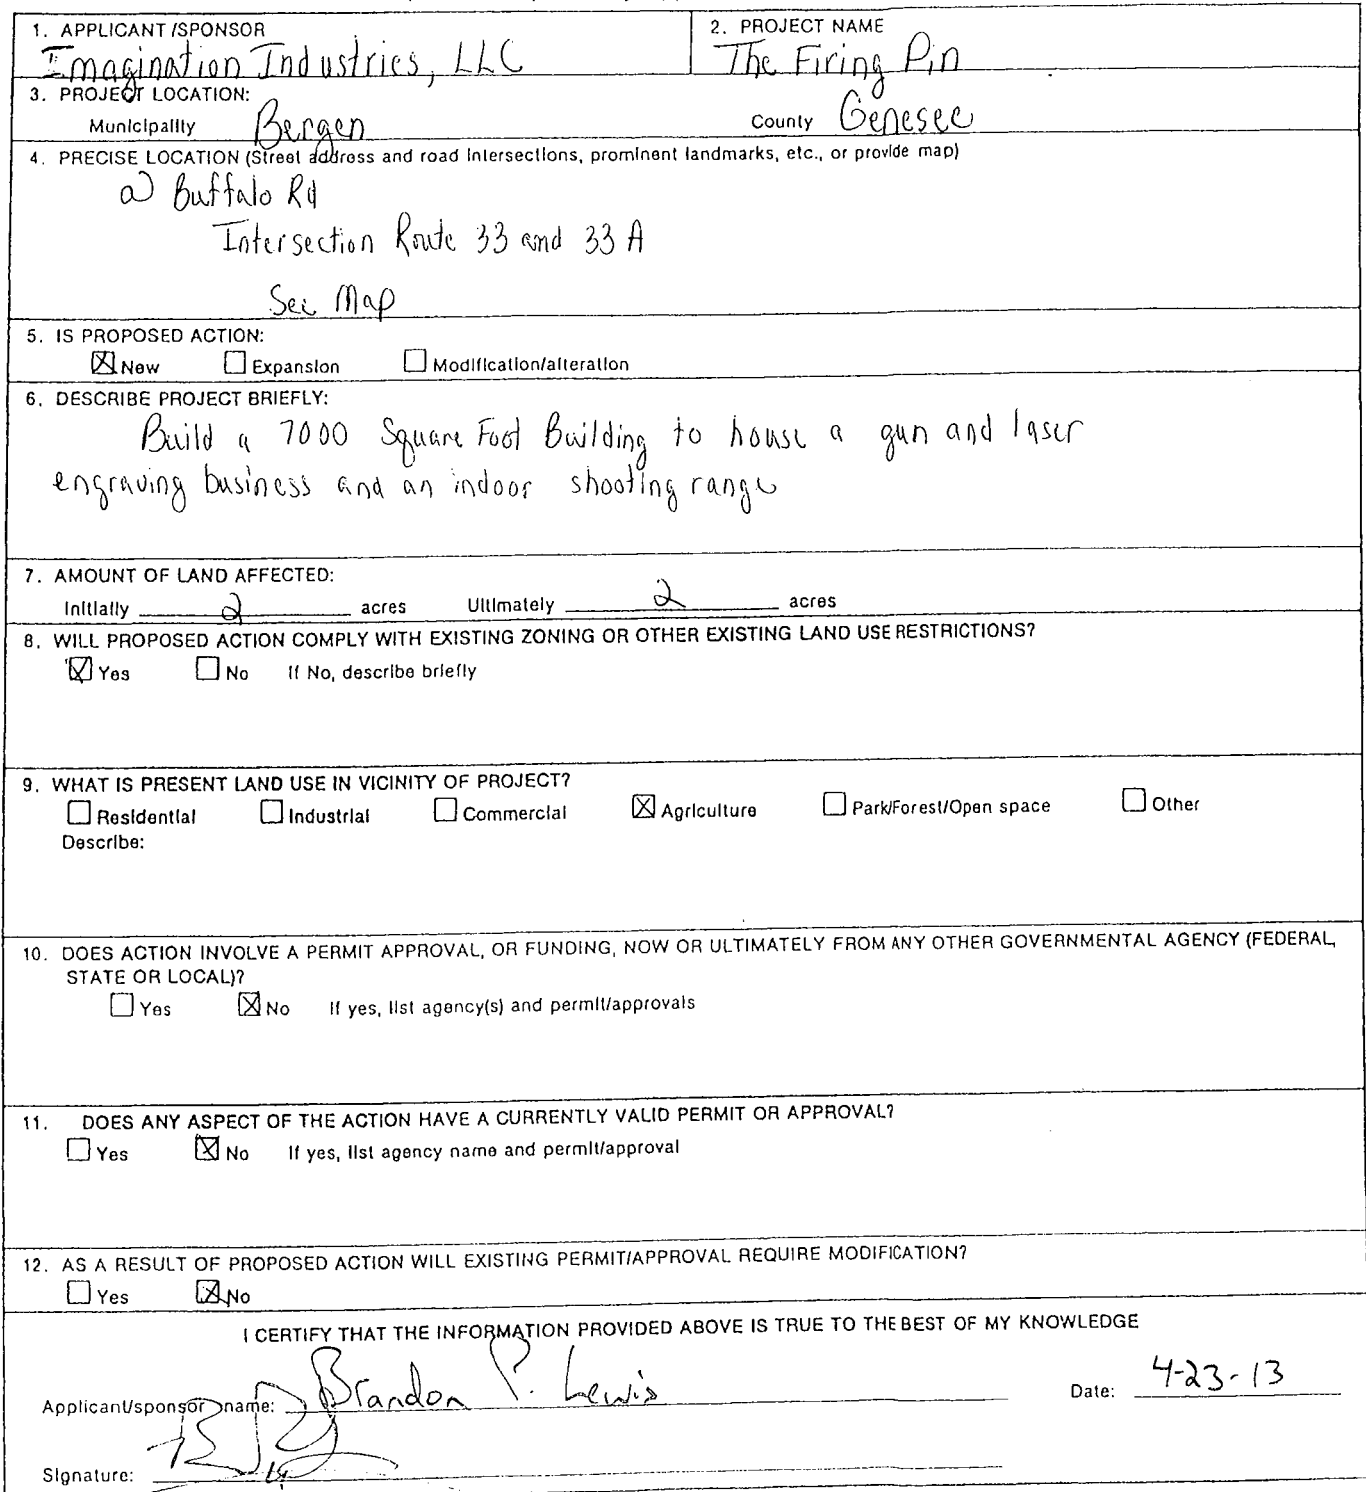 1. APPLICANT/SPONSOR
Imagination Industries, LLC
2. PROJECT NAME
The Firing Pin
3. PROJECT LOCATION:
Municipality Bergen County Genesee
4. PRECISE LOCATION (Street address and road intersections, prominent landmarks, etc., or provide map)
Buffalo Rd
Intersection Route 33 and 33 A
See Map
5. IS PROPOSED ACTION:
☒ New ☐ Expansion ☐ Modification/alteration
6. DESCRIBE PROJECT BRIEFLY:
Build a 7000 Square Foot Building to house a gun and laser
engraving business and an indoor shooting range
7. AMOUNT OF LAND AFFECTED:
Initially 2 acres Ultimately 2 acres
8. WILL PROPOSED ACTION COMPLY WITH EXISTING ZONING OR OTHER EXISTING LAND USE RESTRICTIONS?
☒ Yes ☐ No If No, describe briefly
9. WHAT IS PRESENT LAND USE IN VICINITY OF PROJECT?
☐ Residential ☐ Industrial ☐ Commercial ☒ Agriculture ☐ Park/Forest/Open space ☐ Other
Describe:
10. DOES ACTION INVOLVE A PERMIT APPROVAL, OR FUNDING, NOW OR ULTIMATELY FROM ANY OTHER GOVERNMENTAL AGENCY (FEDERAL,
STATE OR LOCAL)?
☐ Yes ☒ No If yes, list agency(s) and permit/approvals
11. DOES ANY ASPECT OF THE ACTION HAVE A CURRENTLY VALID PERMIT OR APPROVAL?
☐ Yes ☒ No If yes, list agency name and permit/approval
12. AS A RESULT OF PROPOSED ACTION WILL EXISTING PERMIT/APPROVAL REQUIRE MODIFICATION?
☐ Yes ☒ No
I CERTIFY THAT THE INFORMATION PROVIDED ABOVE IS TRUE TO THE BEST OF MY KNOWLEDGE
Applicant/sponsor name: Brandon P. Lewis Date: 4-23-13
Signature: